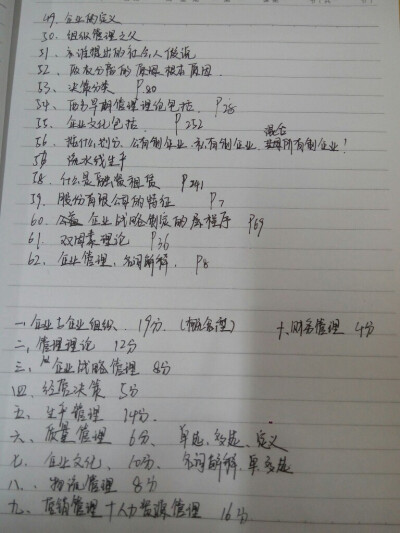 49. 企业的定义
50. 组织管理之父
51. 谁提出的社会人假说
52. 股权分配的原因
53. 决策分类 P80
54. 西方早期管理理论包括. P28
55. 企业文化包括 P252
混合
56. 按什么划分. 公有制企业. 私有制企业. 所有制企业!
57 流水线生产
58. 什么是融资租赁 P241
59. 股份有限公司的特征 P7
60. 企业战略制定的程序 P69
61. 双因素理论 P36
62. 企业管理. 名词解释. P8
一. 企业与企业组织. 19分. (概念型) 十. 财务管理 4分
二. 管理理论 12分
三. 企业战略管理 8分
四. 经营决策 5分
五. 生产管理 14分.
六. 质量管理 6分. 单选. 多选. 定义
七. 企业文化. 10分. 名词解释. 单多选
八. 物流管理 8分
九. 营销管理十人力资源管理 16分